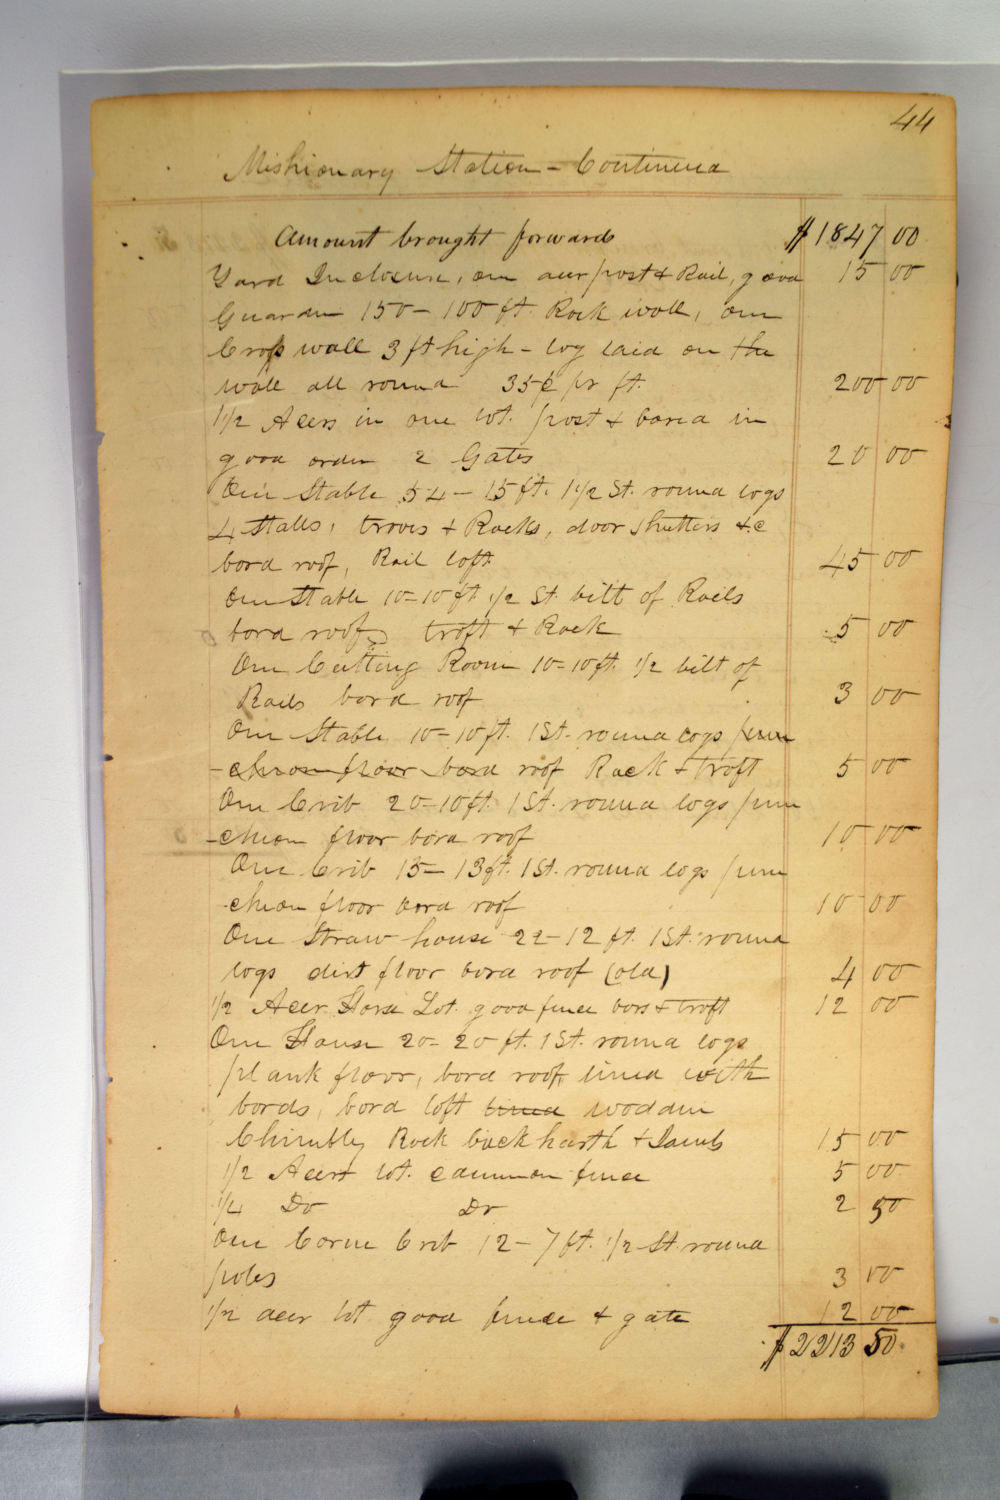 44
Mishionary Station - Continued
Amount brought forward $1847 00
Yard Inclosure, one acer post & Rail, good 15 00
Guarden 150 - 100 ft. Rock wall, one
Cross wall 3 ft high - log laid on the
wall all round 35¢ pr ft. 200 00
1 1/2 Acers in one lot. post & bord in
good order 2 Gates 20 00
One Stable 54 - 15 ft. 1 1/2 St. round logs
4 Stalls, troves & Racks, door Shutters &c
bord roof, Rail loft 45 00
One Stable 10-10 ft 1/2 St. bilt of Rails
bord roof troft & Rack 5 00
One Cutting Room 10-10 ft. 1/2 bilt of
Rails bord roof 3 00
One Stable 10-10 ft. 1 St. round logs pun
-cheon floor bord roof Rack & troft 5 00
One Crib 20-10 ft. 1 St. round logs pun
-cheon floor bord roof 10 00
One Crib 15 - 13 ft. 1 St. round logs pun
-cheon floor bord roof 10 00
One Straw house 22-12 ft. 1 St. round
logs dirt floor bord roof (old) 4 00
1/2 Acer Horse Lot. good fence bors & troft 12 00
One House 20-20 ft. 1 St. round logs
plank floor, bord roof, lined with
bords, bord loft lined wodden
Chimbly Rock back harth & Jambs 15 00
1/2 Acer lot. common fence 5 00
1/4 Do Do 2 50
One Corn Crib 12-7 ft. 1/2 St. round
poles 3 00
1/2 acer lot good fence & gate 12 00
$2213 50